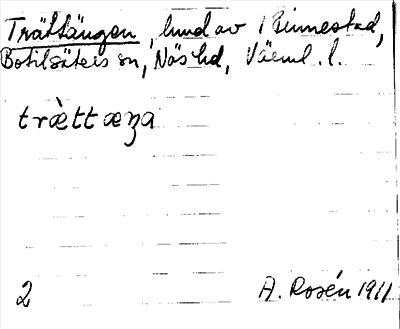 Trättängen, hmd av 1 Binnestad,
Botilsäters sn, Näs hd, Värml. l.
trä̀ttæŋa
2 A. Rosén 1911